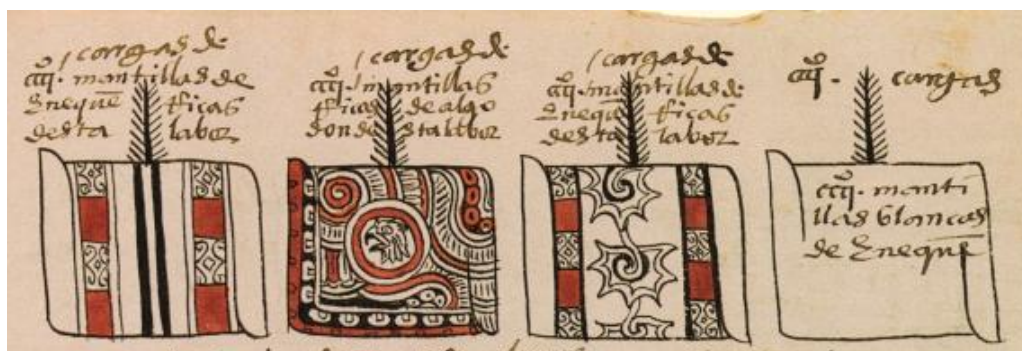 cargas de
cccc. mantillas de
Enequē Ricas
desta labor
cargas de
cccc. mantillas
Ricas de algo
don desta labor
cargas de
cccc. mantillas de
Enequē Ricas
desta labor
cccc. cargas
cccc. manti
llas blancas
de Enequē